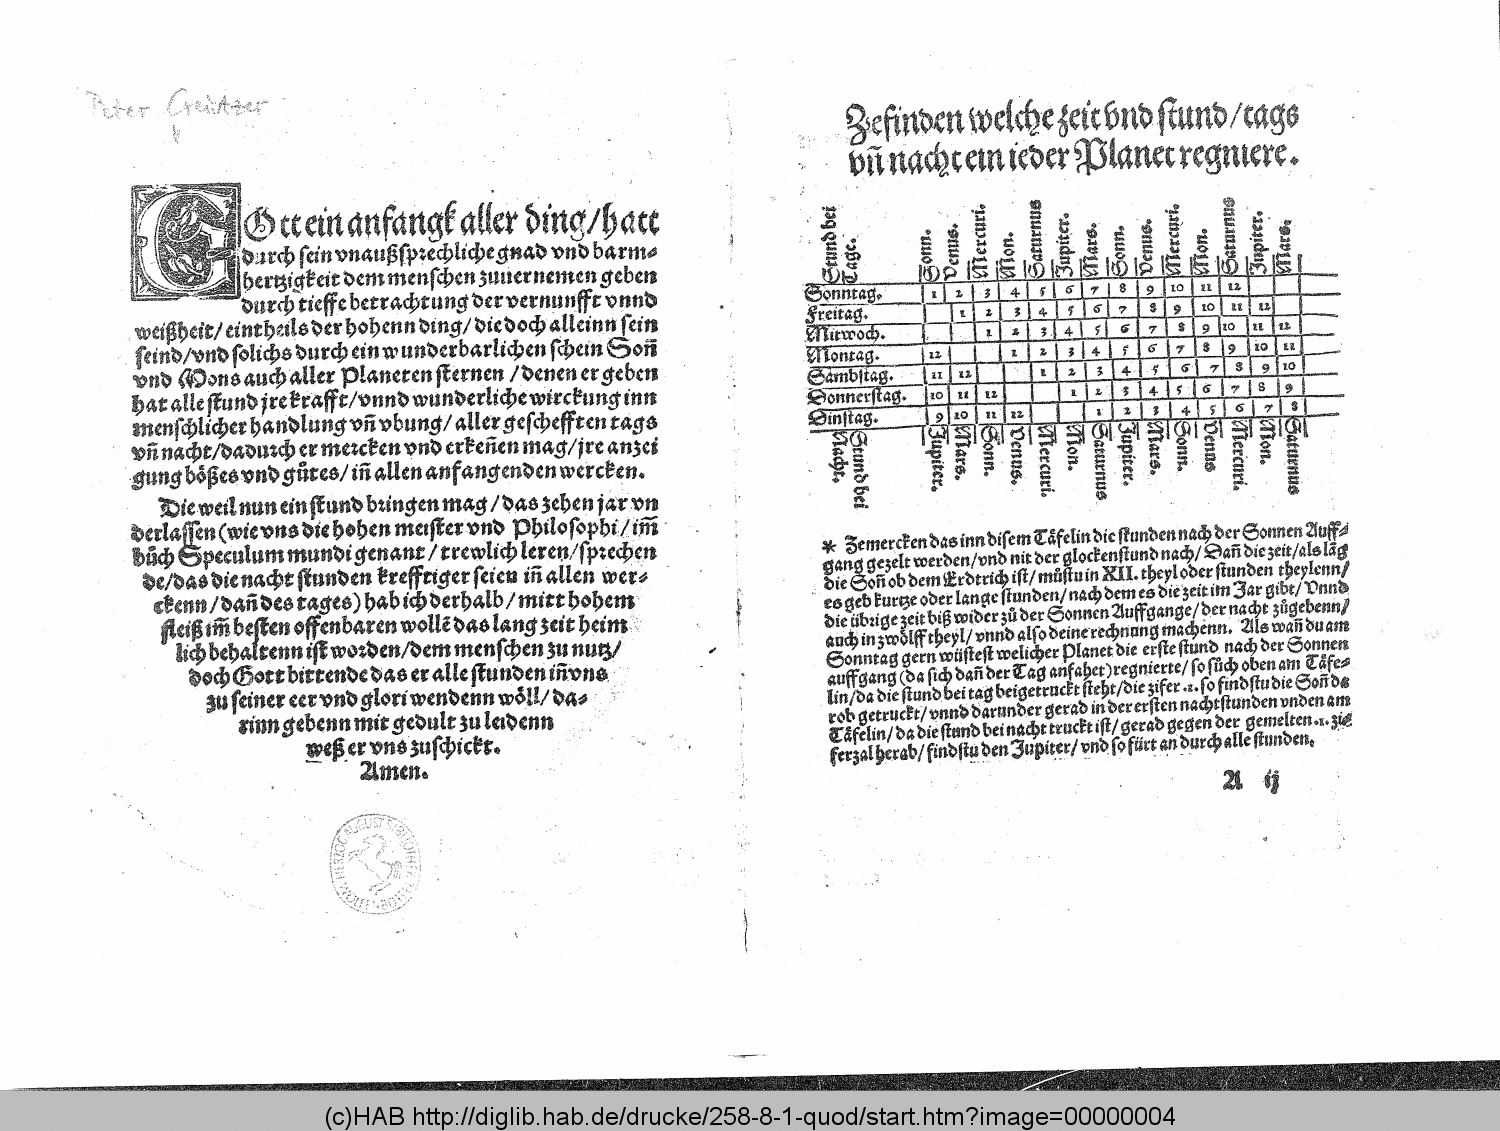 Peter Creutzer
Gott ein anfangk aller ding/hatt
durch sein vnaußsprechliche gnad vnd barm⸗
hertzigkeit dem menschen zuuernemen geben
durch tieffe betrachtung der vernunfft vnnd
weißheit/eintheils der hohenn ding/die doch alleinn sein
seind/vnd solichs durch ein wunderbarlichen schein Soñ
vnd Mons auch aller Planeten sternen/denen er geben
hat alle stund jre krafft/vnnd wunderliche wirckung inn
menschlicher handlung vñ vbung/aller geschefften tags
vñ nacht/dadurch er mercken vnd erkeñen mag/jre anzei
gung bößes vnd gůtes/iñ allen anfangenden wercken.
Die weil nun ein stund bringen mag/das zehen jar vn
derlassen (wie vns die hohen meister vnd Philosophi/im̃
bůch Speculum mundi genant/trewlich leren/sprechen
de/das die nacht stunden krefftiger seien iñ allen wer⸗
ckenn/dañ des tages) hab ich derhalb/mitt hohem
fleiß im̃ besten offenbaren wollẽ das lang zeit heim
lich behaltenn ist worden/dem menschen zu nutz/
doch Gott bittende das er alle stunden iñ vns
zu seiner eer vnd glori wendenn wöll/da⸗
rinn gebenn mit gedult zu leidenn
weß er vns zuschickt.
Amen.
HERZOG AUGUST BIBLIOTHEK WOLFENBÜTTEL
Zefinden welche zeit vnd stund/tags
vñ nacht ein ieder Planet regniere.
Stund bei Tage. Sonn. Venus. Mercuri. Mon. Saturnus Jupiter. Mars. Sonn. Venus. Mercuri. Mon. Saturnus Jupiter. Mars.
Sonntag. 1 2 3 4 5 6 7 8 9 10 11 12
Freitag. 1 2 3 4 5 6 7 8 9 10 11 12
Mitwoch. 1 2 3 4 5 6 7 8 9 10 11 12
Montag. 12 1 2 3 4 5 6 7 8 9 10 11
Sambstag. 11 12 1 2 3 4 5 6 7 8 9 10
Donnerstag. 10 11 12 1 2 3 4 5 6 7 8 9
Dinstag. 9 10 11 12 1 2 3 4 5 6 7 8
Stund bei Nacht. Jupiter. Mars. Sonn. Venus. Mercuri. Mon. Saturnus Jupiter. Mars. Sonn. Venus Mercuri. Mon. Saturnus
* Zemercken das inn disem Tåfelin die stunden nach der Sonnen Auff⸗
gang gezelt werden/vnd nit der glockenstund nach/Dañ die zeit/als lãg
die Soñ ob dem Erdtrich ist/můstu in XII. theyl oder stunden theylenn/
es geb kurtze oder lange stunden/nach dem es die zeit im Jar gibt/Vnnd
die übrige zeit biß wider zů der Sonnen Auffgange/der nacht zůgebenn/
auch in zwölff theyl/vnnd also deine rechnung machenn. Als wañ du am
Sonntag gern wůstest welicher Planet die erste stund nach der Sonnen
auffgang (da sich dañ der Tag anfahet) regnierte/so sůch oben am Tåfe⸗
lin/da die stund bei tag beigetruckt steht/die zifer .1. so findstu die Soñ da
rob getruckt/vnnd darunder gerad in der ersten nachtstunden vnden am
Tåfelin/da die stund bei nacht truckt ist/gerad gegen der gemelten .1. zif
ferzal herab/findstu den Jupiter/vnd so fürt an durch alle stunden.
A ij
(c)HAB http://diglib.hab.de/drucke/258-8-1-quod/start.htm?image=00000004